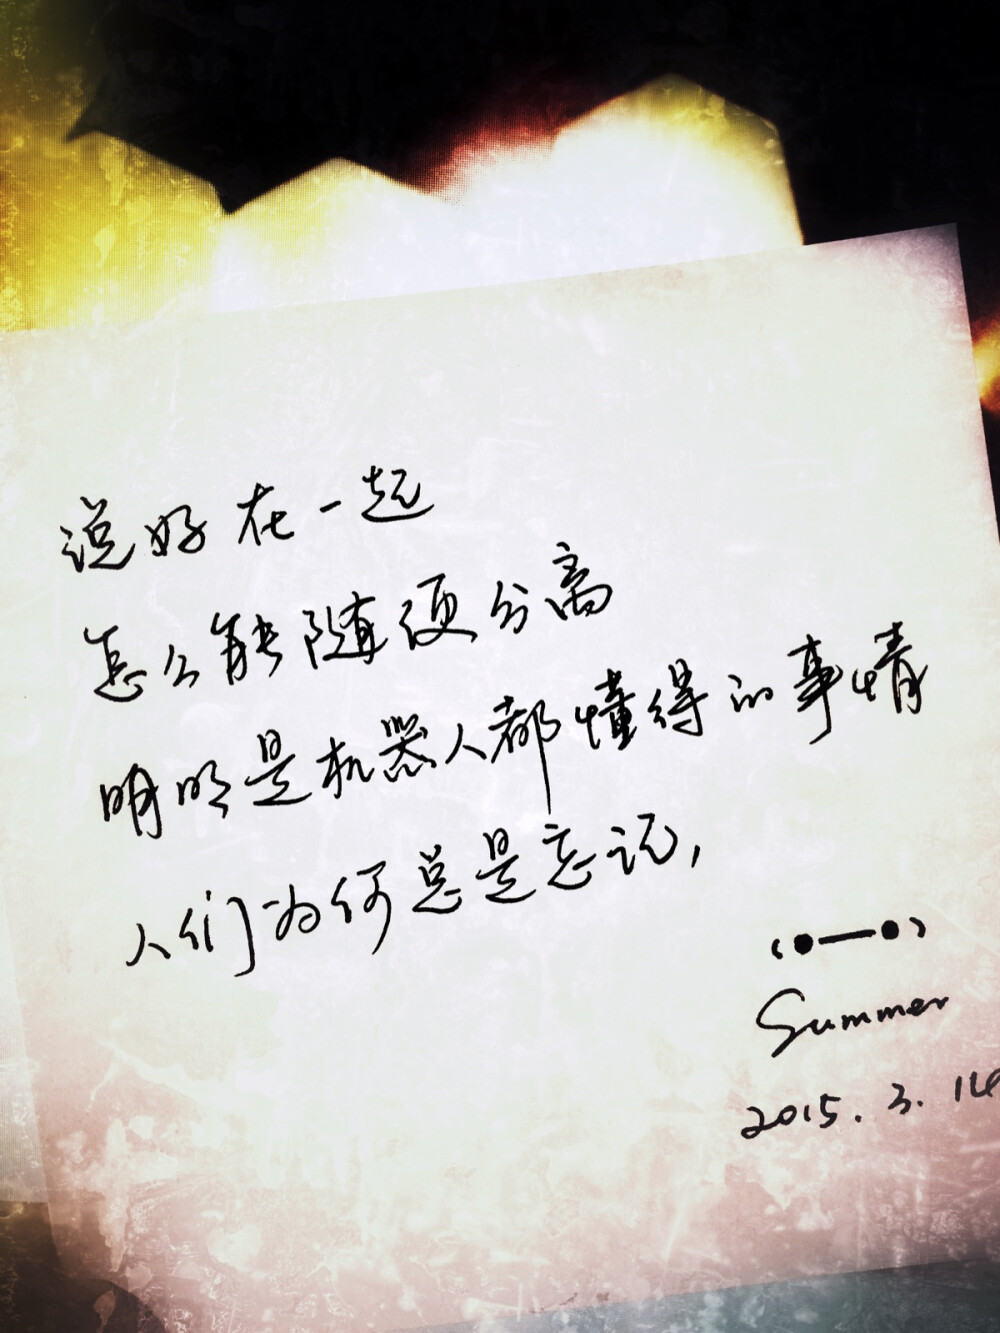 说好在一起
怎么能随便分离
明明是机器人都懂得的事情
人们为何总是忘记,
(●—●)
Summer
2015.3.14